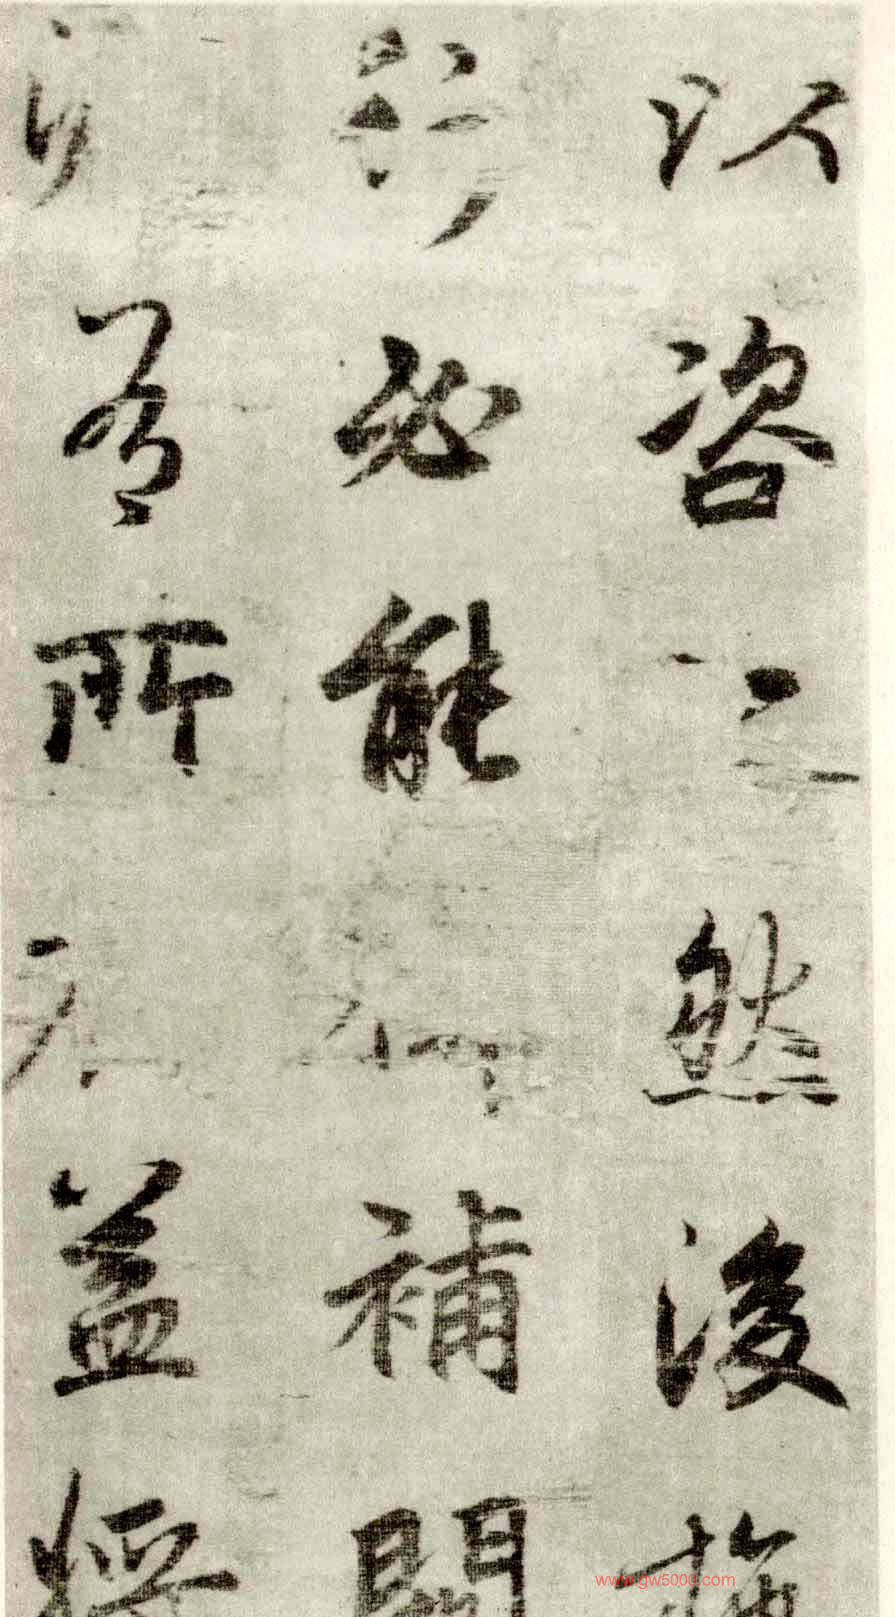 以咨然後施
必能補闕
有所益將
www.gw5000.com